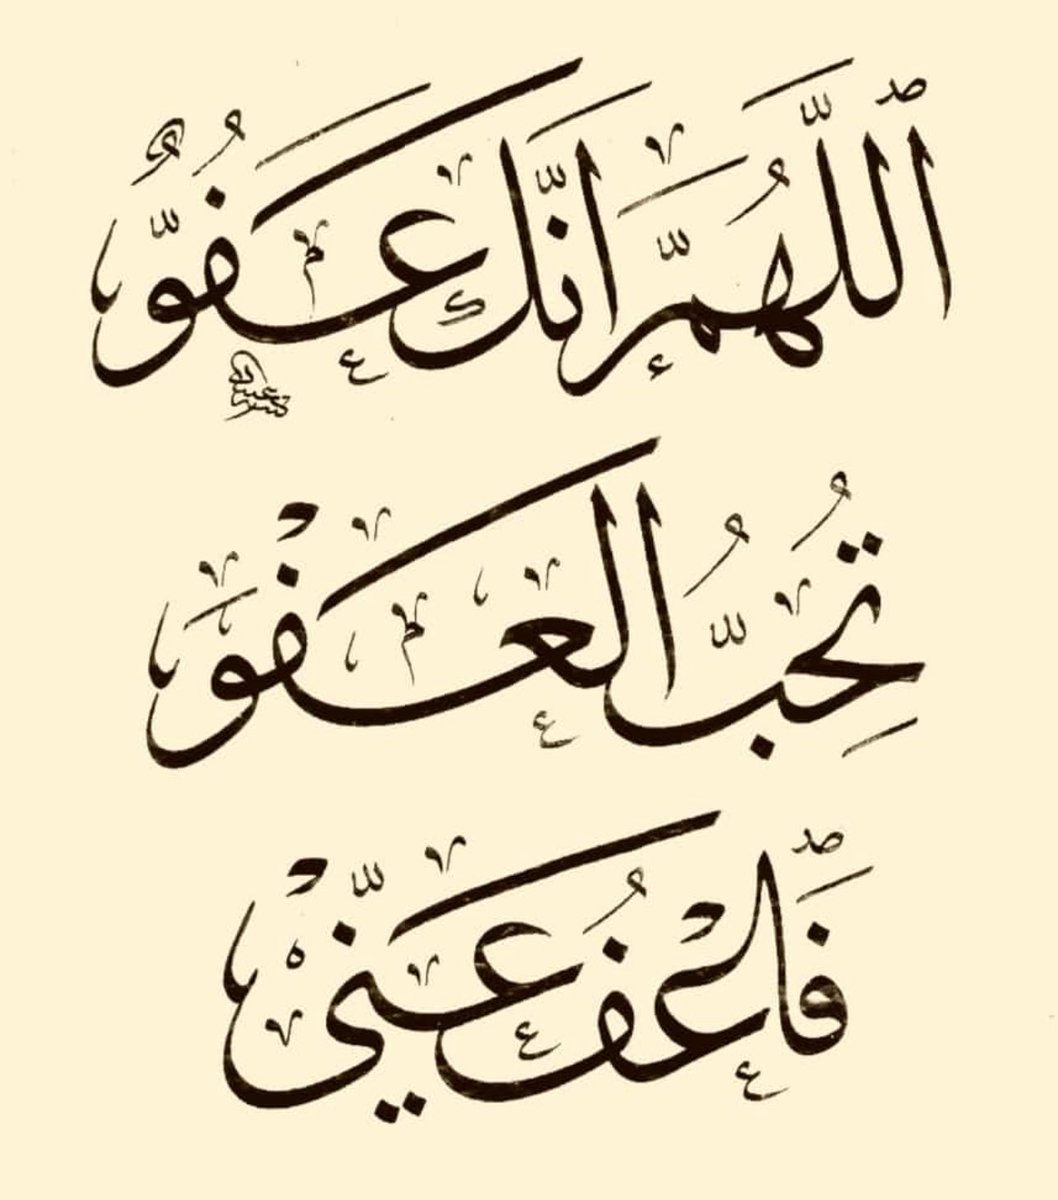 اَللّٰهُمَّ اِنَّكَ عَفُوٌّ
تُحِبُّ الْعَفْوَ
فَاعْفُ عَنّٖي